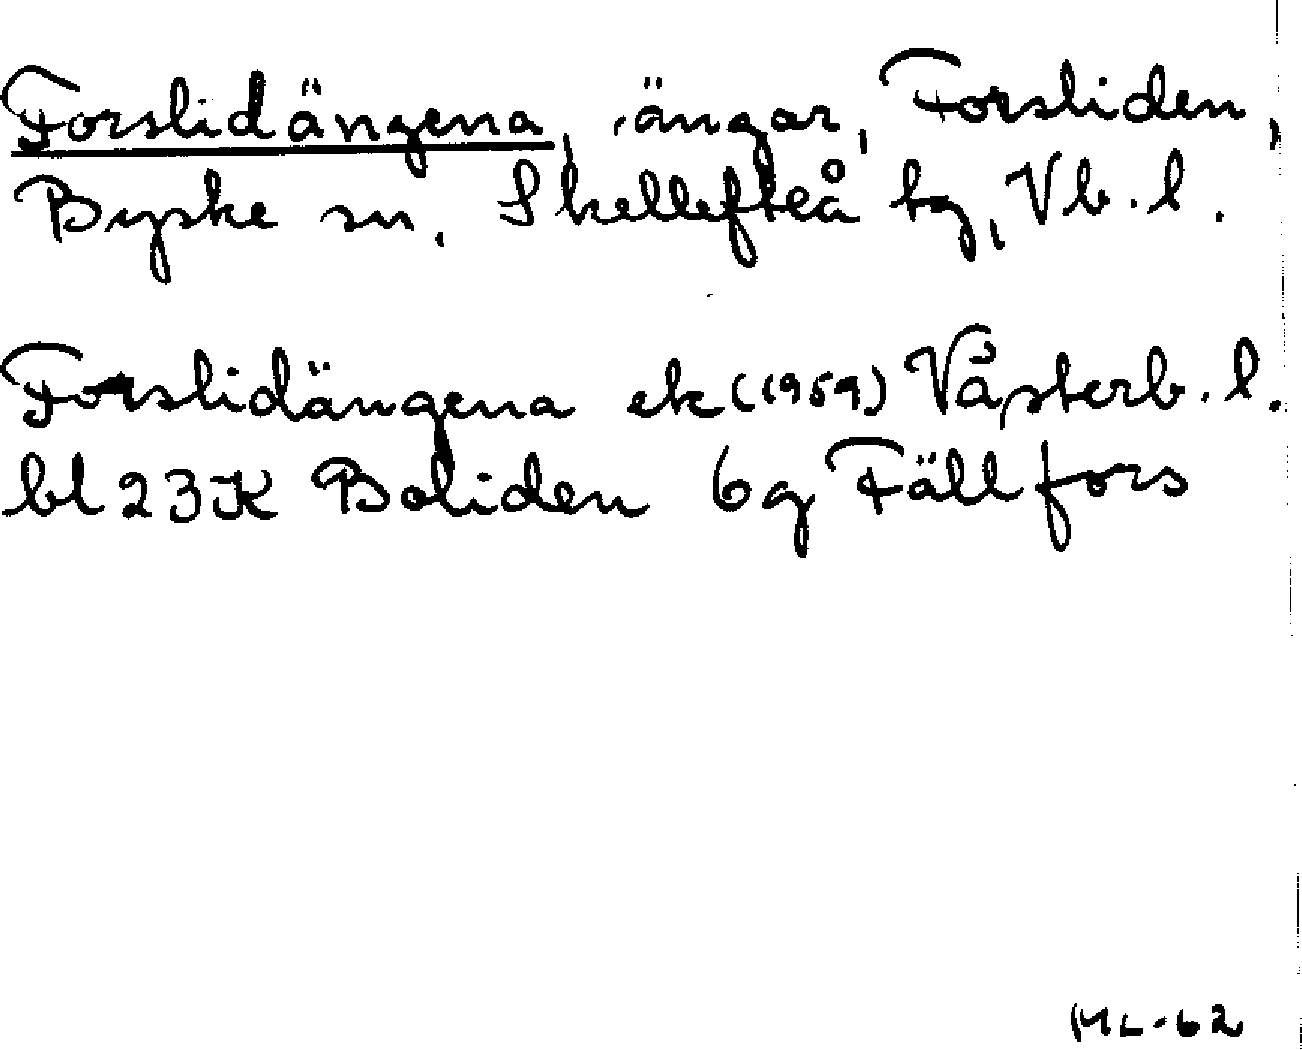 Forslidängena, ängar, Forsliden,
Byske sn, Skellefteå tg, Vb. l.
Forslidängena ek (1959) Västerb. l.
bl 23K Boliden 6g Fällfors
ML-62